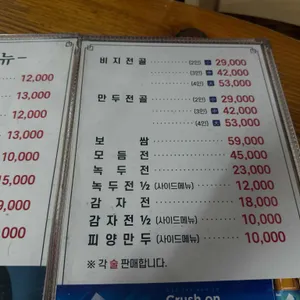 뉴 –
12,000
13,000
12,000
13,000
10,000
15,000
9,000
10,000
비지전골 (2인) 29,000
(3인) 42,000
(4인) 53,000
만두전골 (2인) 29,000
(3인) 42,000
(4인) 53,000
보쌈 59,000
모듬전 45,000
녹두전 23,000
녹두전½ (사이드메뉴) 12,000
감자전 18,000
감자전½ (사이드메뉴) 10,000
피양만두 (사이드메뉴) 10,000
※ 각 술 판매합니다.
Crush on